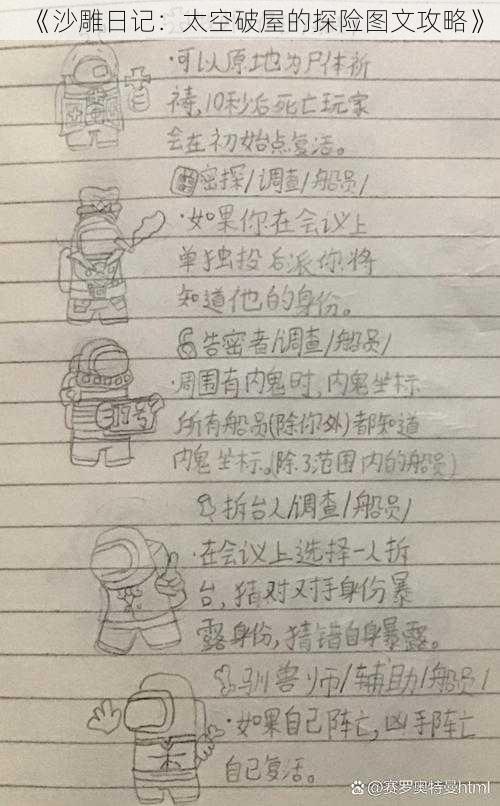 《沙雕日记：太空破屋的探险图文攻略》
·可以原地为尸体祈
祷,10秒后死亡玩家
会在初始点复活。
密探/调查/船员/
·如果你在会议上
单独投后派你将
知道他的身份。
告密者/调查/船员/
·周围有内鬼时,内鬼坐标
所有船员(除你外)都知道
内鬼坐标。(除了范围内的船员)
拆台人/调查/船员/
·在会议上选择一人拆
台,猜对对手身份暴
露身份,猜错自身暴露。
驯兽师/辅助/船员/
·如果自己阵亡,凶手阵亡
自己复活。
赛罗奥特曼html